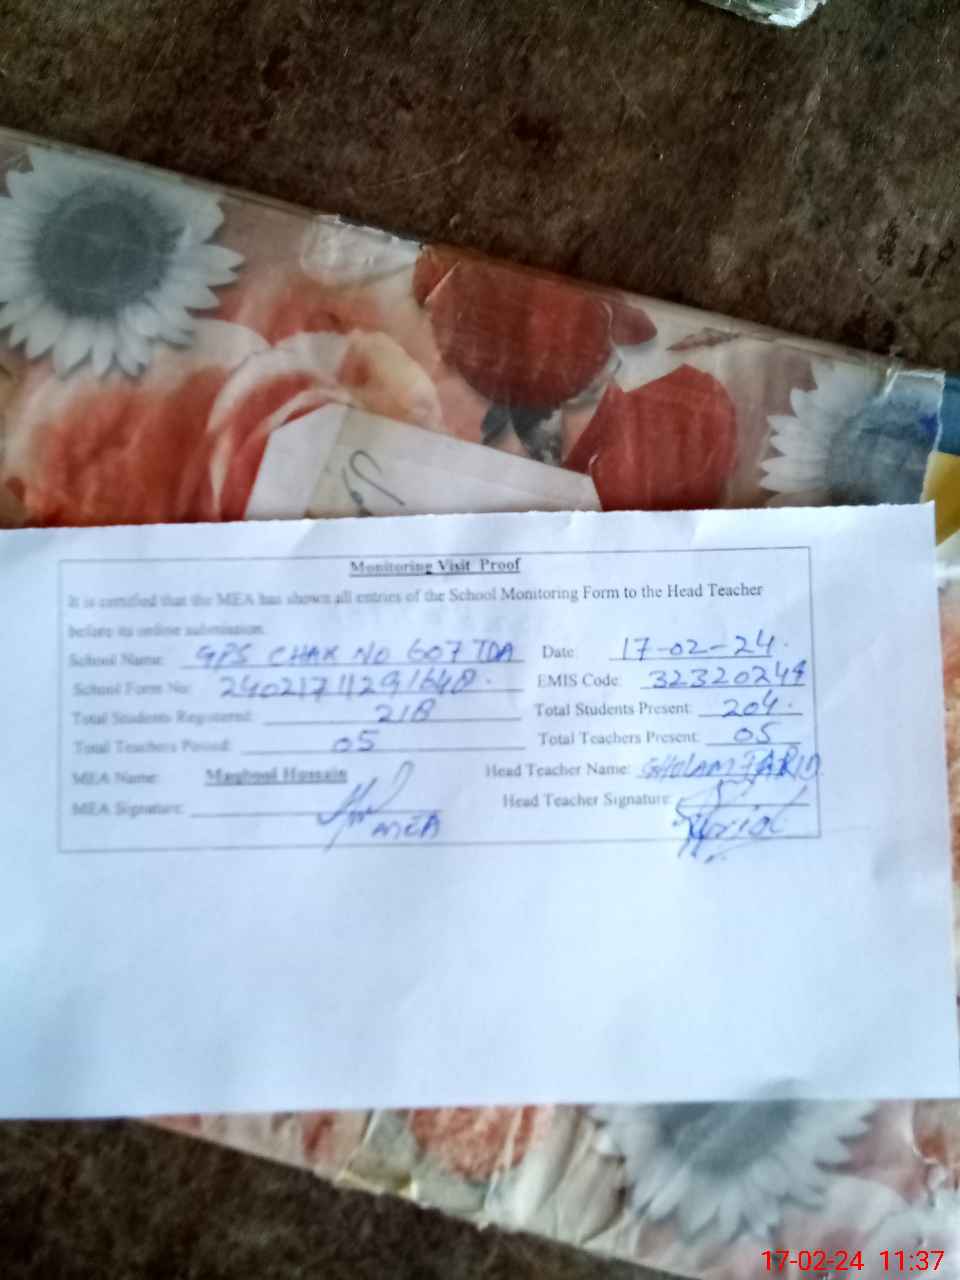 Monitoring Visit Proof
It is certified that the MEA has shown all entries of the School Monitoring Form to the Head Teacher
before its online submission.
School Name: GPS CHAK NO 607 TDA Date: 17-02-24.
School Form No: EMIS Code: 32320249
Total Students Registered: 218 Total Students Present: 204.
Total Teachers Posted: 05 Total Teachers Present: 05
MEA Name: Maqbool Hussain Head Teacher Name: GHULAM FARID
MEA Signature: MEA Head Teacher Signature:
17-02-24 11:37